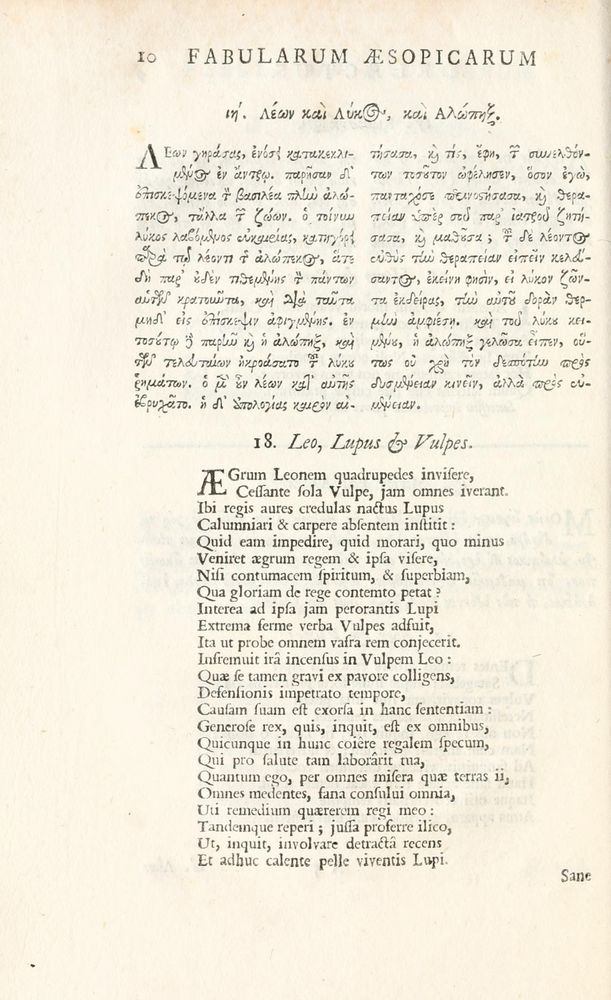 10 FABULARUM ÆSOPICARUM
ιη΄. Λέων καὶ Λύκος, καὶ Αλώπηξ.
ΛΕων γηράσας, ἐνόσει κατακεκλι-
μένος ἐν ἄντρῳ. παρῆσαν δ᾽
ἐπισκεψόμενα τὸν βασιλέα πλὴν ἀλώ-
πεκος, τἄλλα τῶν ζώων. ὁ τοίνυν
λύκος λαβόμενος εὐκαιρίας, κατηγόρει
παρὰ τῷ λέοντι τῆς ἀλώπεκος, ἅτε
δὴ παρ᾽ οὐδὲν τιθεμένης τὸν πάντων
αὐτῶν κρατοῦντα, καὶ διὰ ταῦτα
μηδ᾽ εἰς ἐπίσκεψιν ἀφιγμένης. ἐν
τοσούτῳ δὲ παρῆν καὶ ἡ ἀλώπηξ, καὶ
τῶν τελευταίων ἠκροάσατο τοῦ λύκου
ῥημάτων. ὁ μὲν οὖν λέων κατ᾽ αὐτῆς
ἐβρυχᾶτο. ἡ δ᾽ ἀπολογίας καιρὸν αἰ-
τήσασα, καὶ τίς, ἔφη, τῶν συνελθόν-
των τοσοῦτον ὠφέλησεν, ὅσον ἐγὼ,
πανταχόσε περινοστήσασα, καὶ θερα-
πείαν ὑπὲρ σοῦ παρ᾽ ἰατροῦ ζητή-
σασα, καὶ μαθοῦσα; τοῦ δὲ λέοντος
εὐθὺς τὴν θεραπείαν εἰπεῖν κελεύ-
σαντος, ἐκείνη φησὶν, εἰ λύκον ζῶν-
τα ἐκδείρας, τὴν αὐτοῦ δορὰν θερ-
μὴν ἀμφιέσῃ. καὶ τοῦ λύκου κει-
μένου, ἡ ἀλώπηξ γελῶσα εἶπεν, οὕ-
τως οὐ χρὴ τὸν δεσπότην πρὸς
δυσμένειαν κινεῖν, ἀλλὰ πρὸς εὐ-
μένειαν.
18. Leo, Lupus & Vulpes.
ÆGrum Leonem quadrupedes inviſere,
Ceſſante ſola Vulpe, jam omnes iverant.
Ibi regis aures credulas nactus Lupus
Calumniari & carpere abſentem inſtitit:
Quid eam impedire, quid morari, quo minus
Veniret ægrum regem & ipſa viſere,
Niſi contumacem ſpiritum, & ſuperbiam,
Qua gloriam de rege contemto petat?
Interea ad ipſa jam perorantis Lupi
Extrema ferme verba Vulpes adfuit,
Ita ut probe omnem vafra rem conjecerit.
Infremuit irâ incenſus in Vulpem Leo:
Quæ ſe tamen gravi ex pavore colligens,
Defenſionis impetrato tempore,
Cauſam ſuam eſt exorſa in hanc ſententiam:
Generoſe rex, quis, inquit, eſt ex omnibus,
Quicunque in hunc coiêre regalem ſpecum,
Qui pro ſalute tam laborârit tua,
Quantum ego, per omnes miſera quæ terras ii,
Omnes medentes, ſana conſului omnia,
Uti remedium quærerem regi meo:
Tandemque reperi; juſſa proferre ilico,
Ut, inquit, involvare detractâ recens
Et adhuc calente pelle viventis Lupi.
Sane